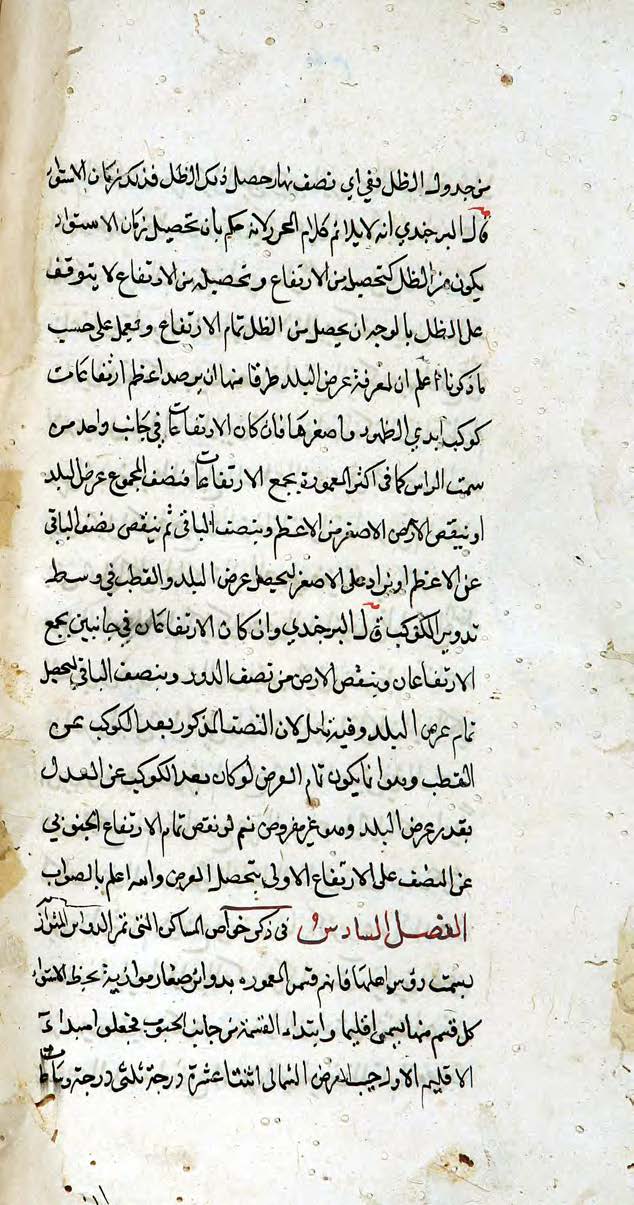 من جدول الظل ففي اي نصف نهار حصل ذلك الظل فذلك زمان الاستواء
قال البرجندي انه لا يلائم كلام المحرر لانه حكم بان تحصيل زمان الاستواء
يكون من الظل كتحصيله من الارتفاع وتحصيله من الارتفاع لا يتوقف
على الظل بالوجه ان يحصل من الظل تمام الارتفاع ويعمل على حسب
ما ذكرنا اعلم ان لمعرفة عرض البلد طرقا منها ان يرصد اعظم ارتفاعات
كوكب ابدي الظهور واصغرها فان كان الارتفاعات في جانب واحد من
سمت الراس كما في اكثر المعمورة يجمع الارتفاعات فنصف المجموع عرض البلد
او ينقص الاصغر من الاعظم وينصف الباقي ثم ينقص نصف الباقي
عن الاعظم او يزاد على الاصغر ليحصل عرض البلد والقطب في وسط
تدوير الكوكب قال البرجندي وان كان الارتفاعان في جانبين يجمع
الارتفاعان وينقص من نصف الدور وينصف الباقي ليحصل
تمام عرض البلد وفيه تامل لان النصف المذكور بعد الكوكب عن
القطب وهو انما يكون تمام العرض لو كان بعد الكوكب عن المعدل
بقدر عرض البلد وهو غير مفروض نعم لو نقص تمام الارتفاع الجنوبي
عن النصف على الارتفاع الاولي يتحصل العرض والله اعلم بالصواب
الفصل السادس في ذكر خواص المساكن التي تمر الدوائر
بسمت رؤس اهلها فانهم قسموا المعموره بدوائر صغار موازية لخط الاستواء
كل قسم منها يسمى اقليما وابتداء القسمة من جانب الجنوب فجعلوا مبداء
الاقليم الاول حيث العرض الشمالي اثنتا عشرة درجة ثلثي درجة